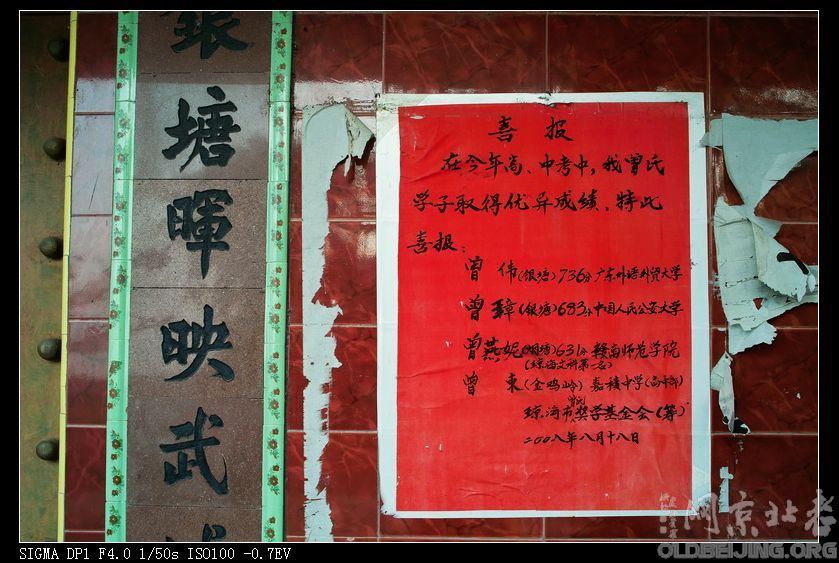 銀塘暉映武
喜报
在今年高、中考中,我曾氏
学子取得优异成绩。特此
喜报:
曾 伟(银塘)736分 广东外语外贸大学
曾 (银塘)683分 中国人民公安大学
曾燕妮 631分 赣南师范学院
(琼海文科第一名)
曾 東(金鸡岭)嘉積中学
琼海市曾氏奖学基金会(筹)
二〇〇八年八月十八日
老北京网
OLDBEIJING.ORG
SIGMA DP1 F4.0 1/50s ISO100 -0.7EV